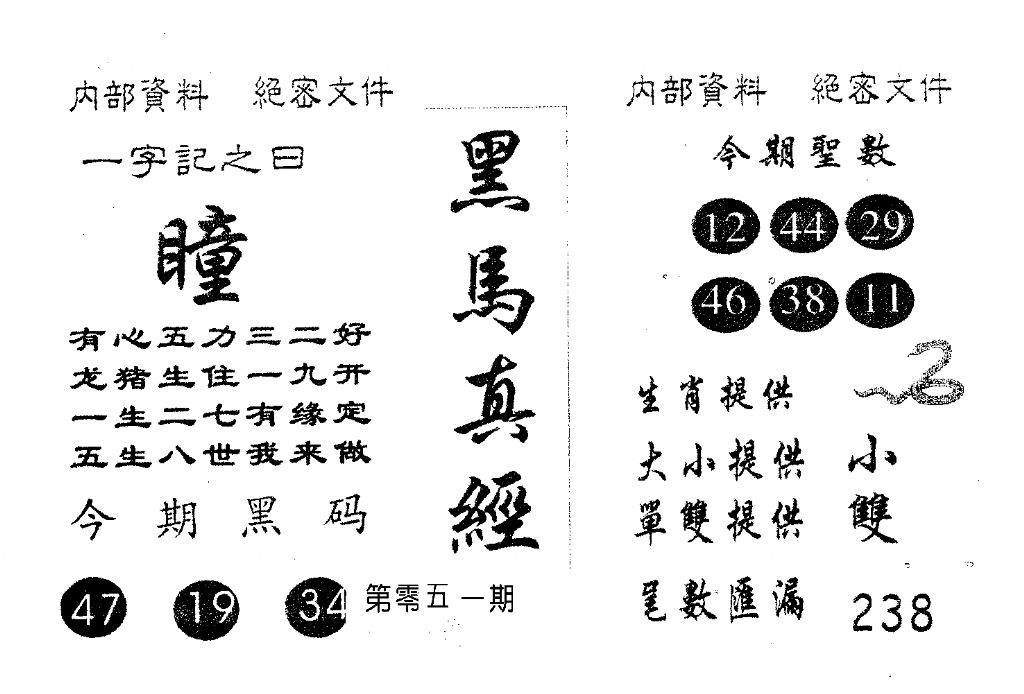 内部資料 絕密文件
一字記之曰
瞳
有心五力三二好
龙猪生住一九开
一生二七有缘定
五生八世我来做
今期黑码
47 19 34
第零五一期
黑馬真經
内部資料 絕密文件
今期聖數
12 44 29
46 38 11
生肖提供
大小提供 小
單雙提供 雙
數匯漏 238